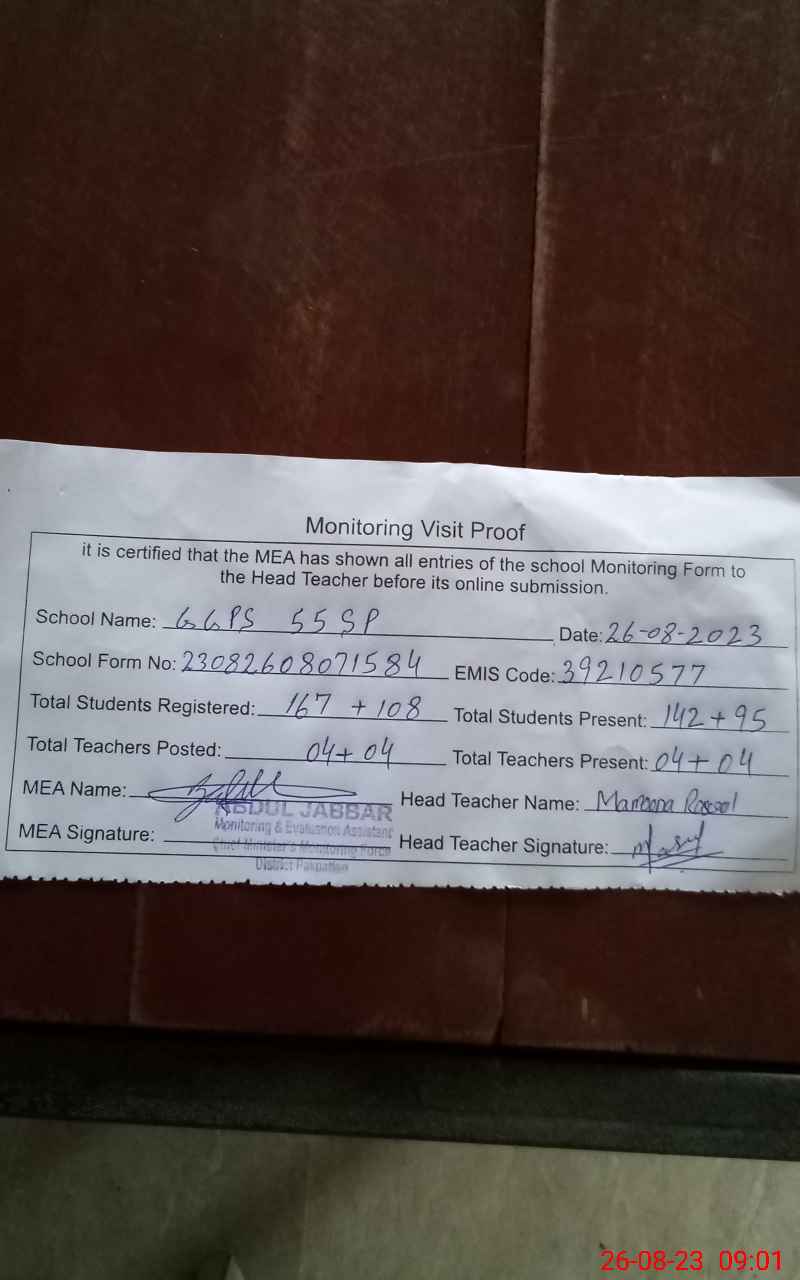 Monitoring Visit Proof
it is certified that the MEA has shown all entries of the school Monitoring Form to
the Head Teacher before its online submission.
School Name: GGPS 55 SP Date: 26-08-2023
School Form No: 23082608071584 EMIS Code: 39210577
Total Students Registered: 167 + 108 Total Students Present: 142 + 95
Total Teachers Posted: 04 + 04 Total Teachers Present: 04 + 04
MEA Name: Head Teacher Name:
ABDUL JABBAR
Monitoring & Evaluation Assistant
MEA Signature: Head Teacher Signature:
Chief Minister's Monitoring Force
District Pakpattan
26-08-23 09:01